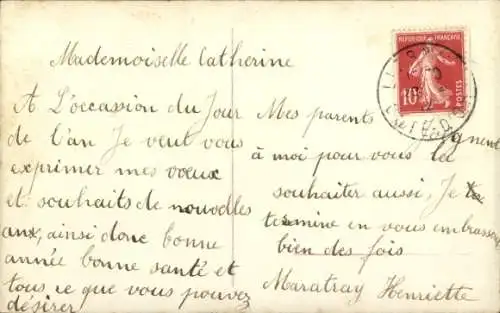 Mademoiselle Catherine
A L'occasion du Jour
de L'an Je veut vous
exprimer mes voeux
et souhaits de nouvelles
anx, ainsi donc bonne
année bonne santé et
tous ce que vous pouvez
désirer
Mes parents joignent
à moi pour vous le
souhaiter aussi, Je
termine en vous embrassant
bien des fois
Maratray Henriette
REPUBLIQUE FRANÇAISE
10
POSTES